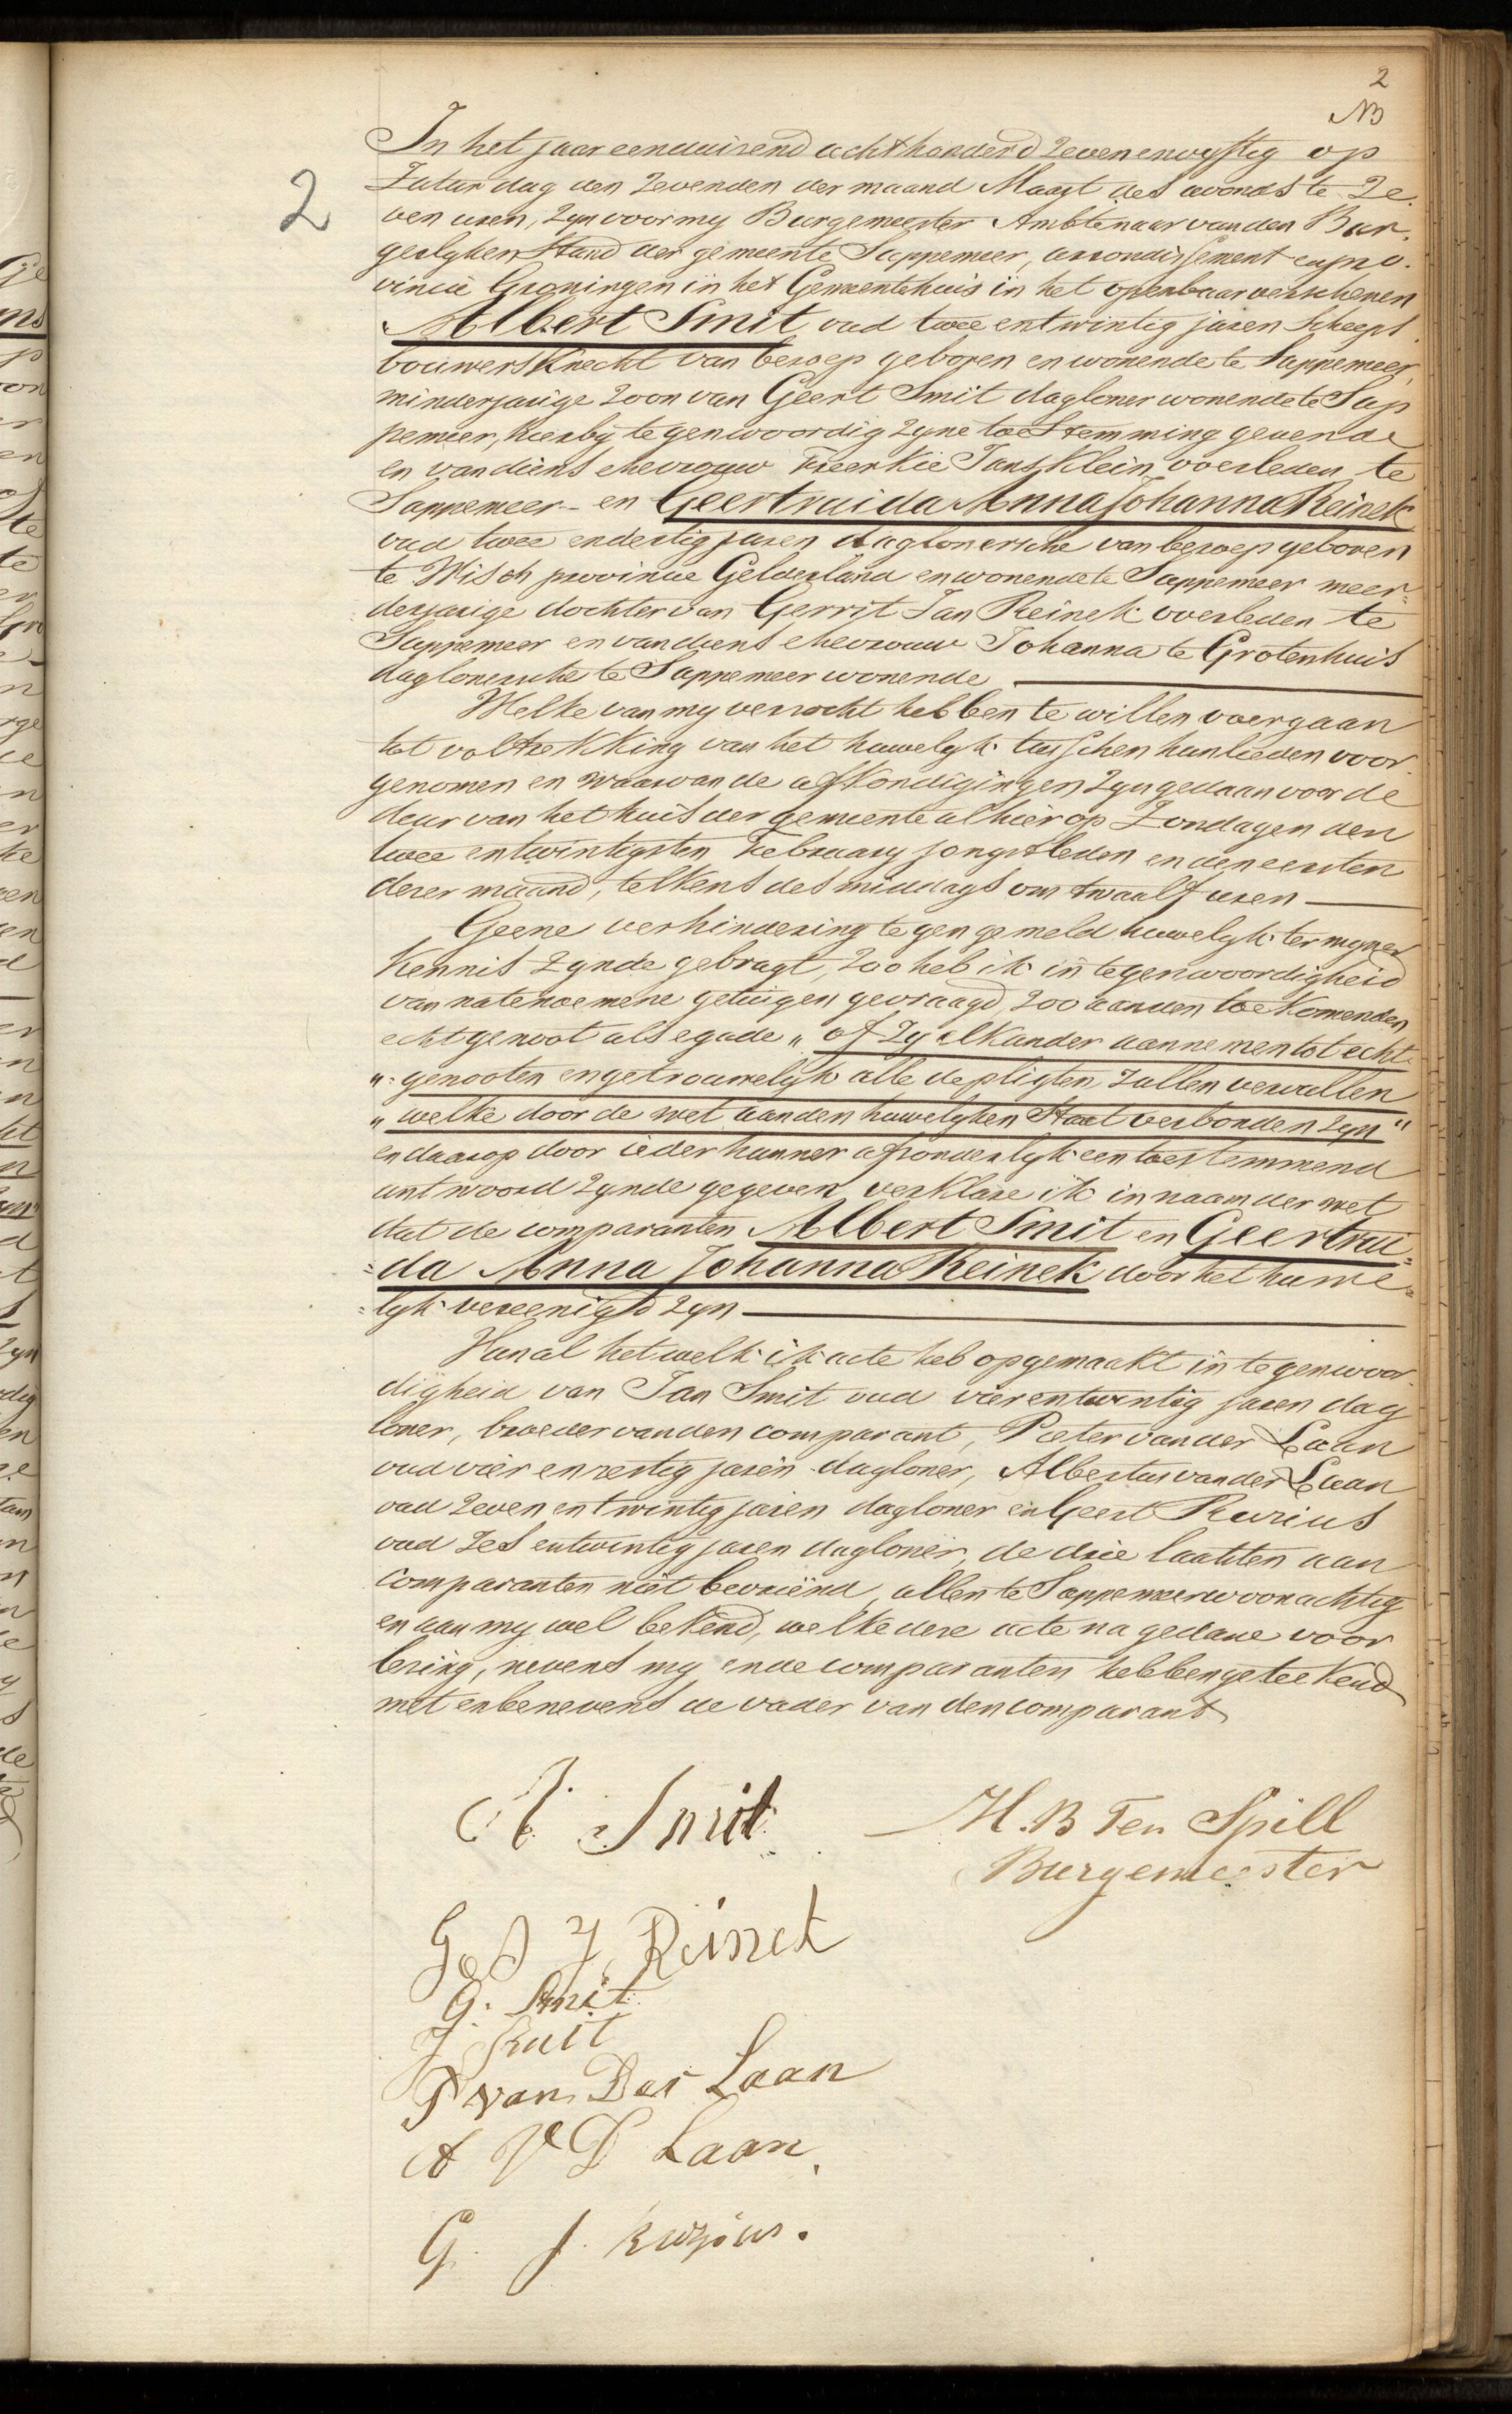 2
NB
2
In het jaar eenduizend achthonderd zevenenvyftig op
Zaturdag den zevenden der maand Maart des avonds te ze
ven uren, zyn voor my Burgemeester Ambtenaar van den Bur
gerlyken Stand der gemeente Sappemeer, arrondissement en pro
vincie Groningen in het Gemeentehuis in het openbaar verschenen
Albert Smit, oud twee entwintig jaren Scheeps
bouwersknecht van beroep geboren en wonende te Sappemeer,
minderjarige zoon van Geert Smit dagloner wonende te Sap
pemeer, hierby tegenwoordig zyne toestemming gevende
en van diens ehevrouw Freerkie Jans Klein overleden te
Sappemeer - en Geertruida Anna Johanna Reinek
oud twee endertig jaren dagloonersche van beroep geboren
te Wisch provincie Gelderland en wonende te Sappemeer meer=
derjarige dochter van Gerrit Jan Reinek overleden te
Sappemeer en van diens ehevrouw Johanna te Grotenhuis
daglonersche te Sappemeer wonende
Welke van my verzocht hebben te willen overgaan
tot voltrekking van het huwelyk tusschen hunlieden voor
genomen en waarvan de afkondigingen zyn gedaan voor de
deur van het huis der gemeente alhier op Zondagen den
twee entwintigsten February jongstleden en den eersten
dezer maand, telkens des middags om twaalf uren
Geene verhindering tegen gemeld huwelyk ter myner
kennis zynde gebragt, zoo heb ik in tegenwoordigheid
van natenoemene getuigen gevraagd, zoo aan den toekomenden
echtgenoot als egade „ of zy elkander aannemen tot echt
„ genooten en getrouwelyk alle de pligten zullen vervullen
„ welke door de wet aan den huwelyken Staat verbonden zyn "
en daarop door ieder hunner afzonderlyk een toestemmend
antwoord zynde gegeven verklare ik in naam der wet
dat de comparanten Albert Smit en Geertrui=
=da Anna Johanna Reinek door het huwe=
=lyk vereenigd zyn
Van al hetwelk ik acte heb opgemaakt in tegenwoor
digheid van Jan Smit oud vierentwintig jaren dag
loner, broeder van den comparant, Pieter van der Laan
oud vier enzestig jaren dagloner, Albertus van der Laan
oud zeven entwintig jaren dagloner en Geert Kurius
oud zes entwintig jaren dagloner, de drie laatsten aan
comparanten niet bevriend, allen te Sappemeer woonachtig
en aan my wel bekend, welke deze acte na gedane voor
lezing, nevens my en de comparanten hebben geteekend
met en benevens de vader van den comparant
A Smit
H. B Ten Spill
Burgemeester
G A J Reinek
G. Smit
J Smit
P van Der Laan
A V D Laan
G J